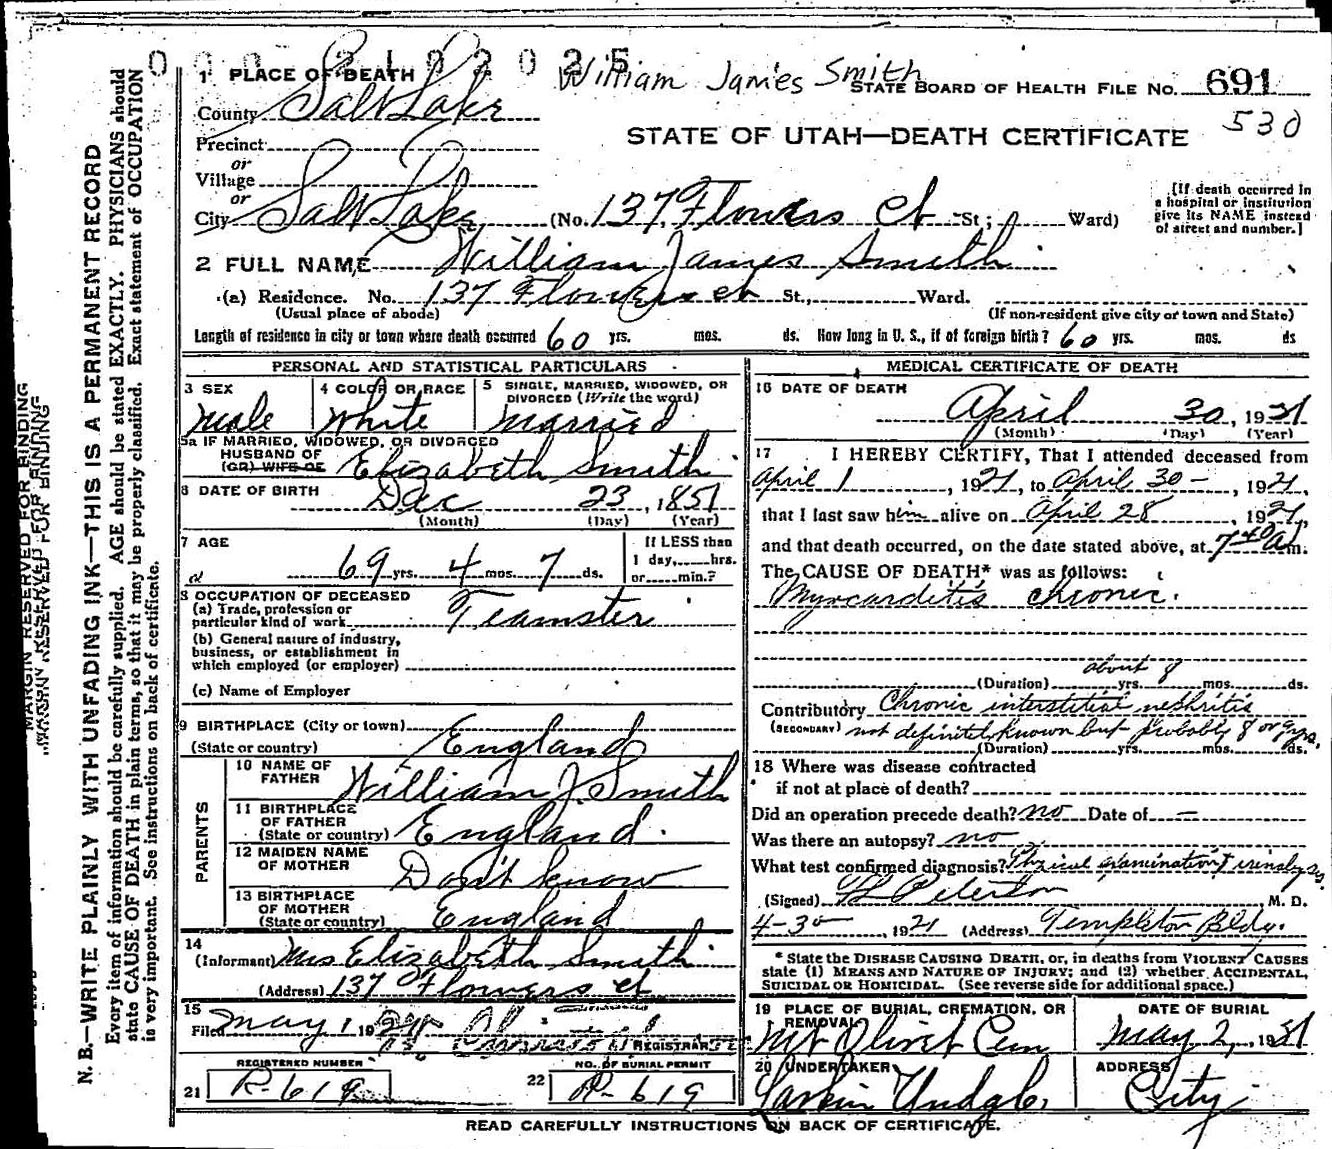 William James Smith
1 PLACE OF DEATH
STATE BOARD OF HEALTH FILE NO. 691
County Salt Lake
530
STATE OF UTAH—DEATH CERTIFICATE
Precinct
or
Village
or
City Salt Lake (No. 137 Flowers ct St; Ward)
[If death occurred in
a hospital or institution
give its NAME instead
of street and number.]
2 FULL NAME William James Smith
(a) Residence. No. 137 Flowers ct St., Ward.
(Usual place of abode) (If non-resident give city or town and State)
Length of residence in city or town where death occurred 60 yrs. mos. ds. How long in U. S., if of foreign birth? 60 yrs. mos. ds
PERSONAL AND STATISTICAL PARTICULARS
3 SEX
Male
4 COLOR OR RACE
White
5 SINGLE, MARRIED, WIDOWED, OR
DIVORCED (Write the word)
Married
5a IF MARRIED, WIDOWED, OR DIVORCED
HUSBAND OF
(OR) WIFE OF Elizabeth Smith
6 DATE OF BIRTH Dec 23, 1851
(Month) (Day) (Year)
7 AGE
69 yrs. 4 mos. 7 ds.
If LESS than
1 day, hrs.
or min.?
8 OCCUPATION OF DECEASED
(a) Trade, profession or
particular kind of work Teamster
(b) General nature of industry,
business, or establishment in
which employed (or employer)
(c) Name of Employer
9 BIRTHPLACE (City or town)
(State or country) England
PARENTS
10 NAME OF
FATHER William J. Smith
11 BIRTHPLACE
OF FATHER
(State or country) England.
12 MAIDEN NAME
OF MOTHER Don't know
13 BIRTHPLACE
OF MOTHER
(State or country) England
14
(Informant) Mrs Elizabeth Smith
(Address) 137 Flowers ct
15
Filed May 1, 19
REGISTRAR
REGISTERED NUMBER
21 R-619
NO. OF BURIAL PERMIT
22 R-619
MEDICAL CERTIFICATE OF DEATH
16 DATE OF DEATH
April 30, 1921
(Month) (Day) (Year)
17 I HEREBY CERTIFY, That I attended deceased from
April 1, 1921, to April 30 -, 1921,
that I last saw him alive on April 28, 1921,
and that death occurred, on the date stated above, at 7 40 A m.
The CAUSE OF DEATH* was as follows:
Myocarditis chronic.
about 8
(Duration) yrs. mos. ds.
Contributory Chronic interstitial nephritis
(SECONDARY) not definitely known but probably 8 or 9 yrs.
(Duration) yrs. mos. ds.
18 Where was disease contracted
if not at place of death?
Did an operation precede death? no Date of —
Was there an autopsy? no
What test confirmed diagnosis? Physical examination & urinalysis.
(Signed) Peterson M. D.
4-30, 1921 (Address) Templeton Bldg.
* State the DISEASE CAUSING DEATH, or, in deaths from VIOLENT CAUSES
state (1) MEANS AND NATURE OF INJURY; and (2) whether ACCIDENTAL,
SUICIDAL OR HOMICIDAL. (See reverse side for additional space.)
19 PLACE OF BURIAL, CREMATION, OR
REMOVAL
Mt Olivet Cem
DATE OF BURIAL
May 2, 1921
20 UNDERTAKER
Larkin Undg Co.
ADDRESS
City
READ CAREFULLY INSTRUCTIONS ON BACK OF CERTIFICATE.
MARGIN RESERVED FOR BINDING
N. B.—WRITE PLAINLY WITH UNFADING INK—THIS IS A PERMANENT RECORD
Every item of information should be carefully supplied. AGE should be stated EXACTLY. PHYSICIANS should
state CAUSE OF DEATH in plain terms, so that it may be properly classified. Exact statement of OCCUPATION
is very important. See instructions on back of certificate.